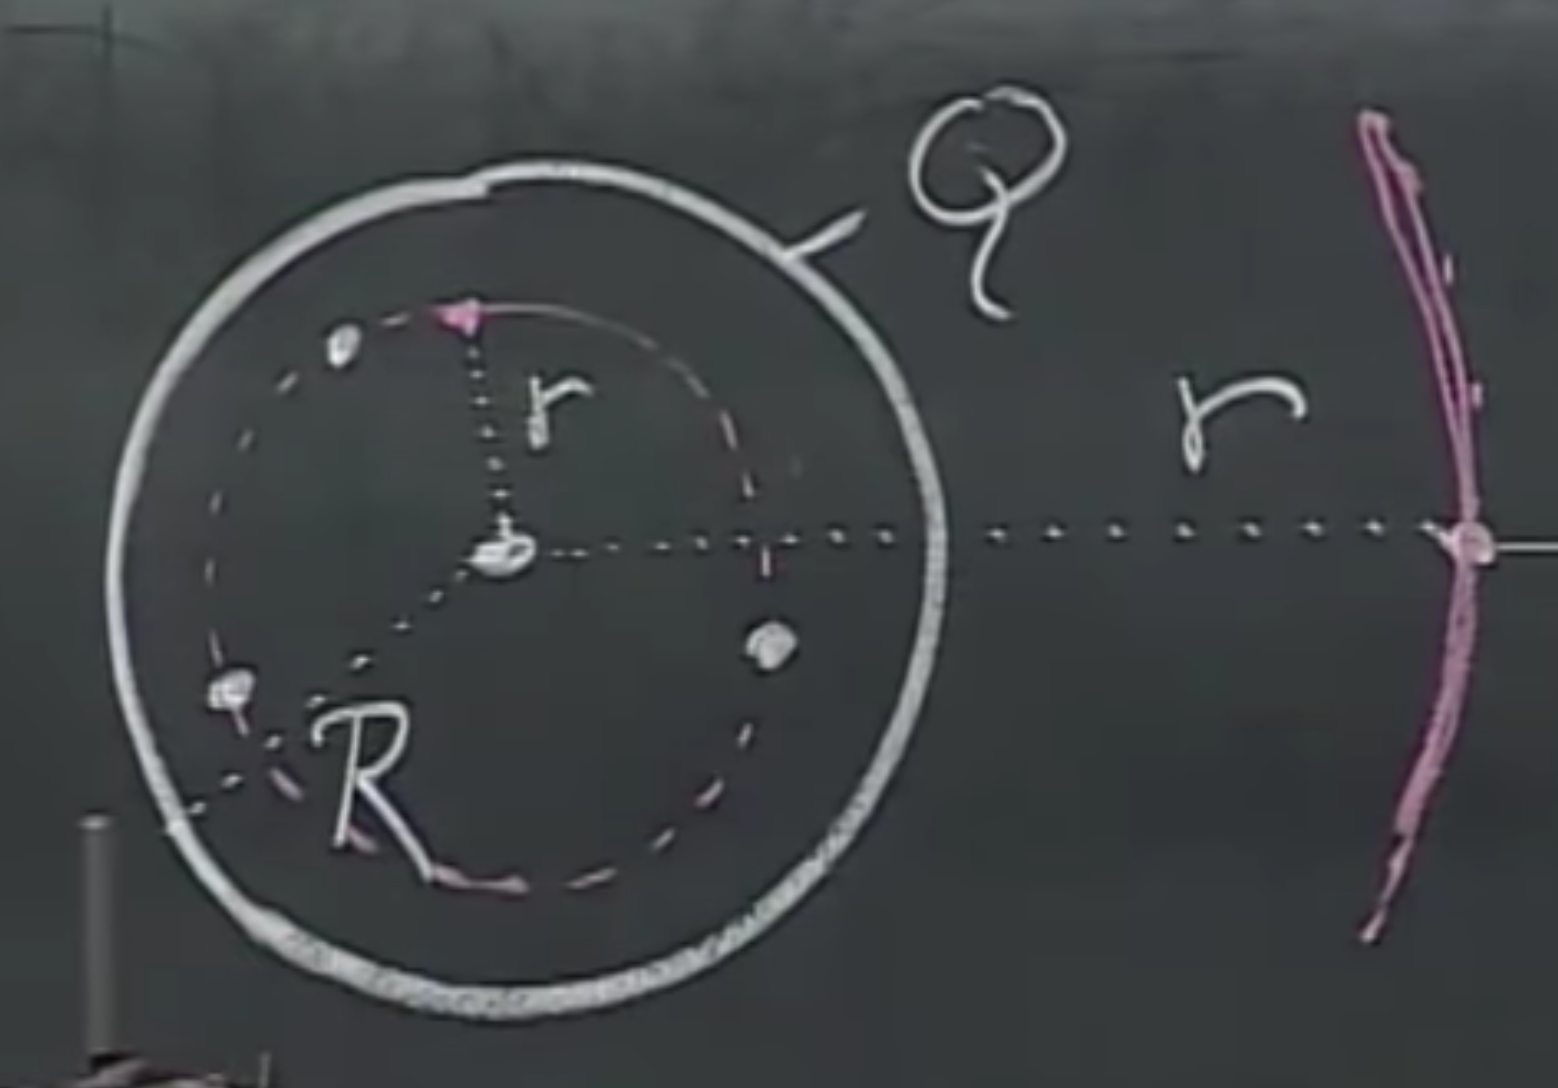 Q
r
r
R